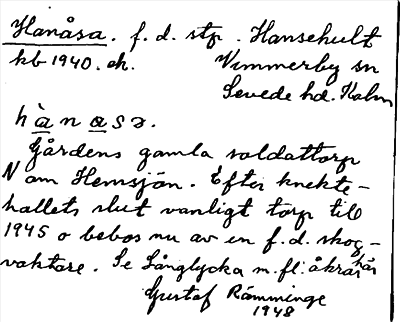 Hanåsa. f.d. stp. Hansehult
kb 1940. ek. Vimmerby sn
Sevede hd. Kalm
hànasə.
Gårdens gamla soldattorp
N om Hemsjön. Efter knekte-
hallets slut vanligt torp till
1945 o bebos nu av en f.d. skog-
vaktare. Se Långlycka m.fl. åkrar här
Gustaf Rämminge
1948